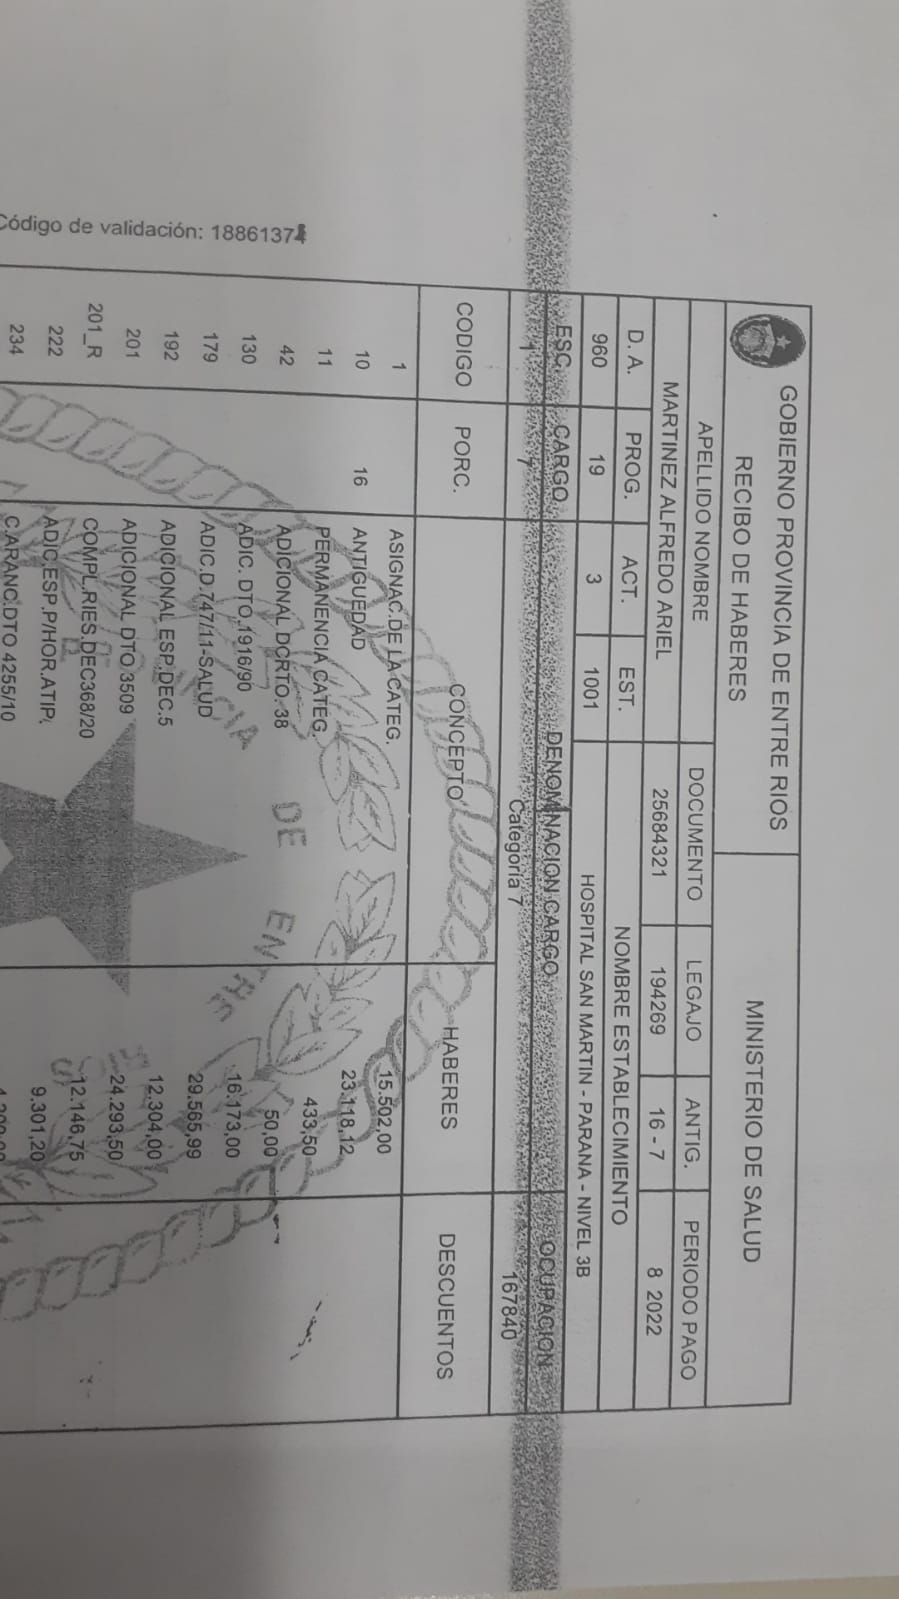 GOBIERNO PROVINCIA DE ENTRE RIOS
RECIBO DE HABERES
MINISTERIO DE SALUD
APELLIDO NOMBRE DOCUMENTO LEGAJO ANTIG. PERIODO PAGO
MARTINEZ ALFREDO ARIEL 25684321 194269 16 - 7 8 2022
D. A. PROG. ACT. EST. NOMBRE ESTABLECIMIENTO
960 19 3 1001 HOSPITAL SAN MARTIN - PARANA - NIVEL 3B
ESC. CARGO DENOMINACION CARGO OCUPACION
1 7 Categoría 7 167840
CODIGO PORC. CONCEPTO HABERES DESCUENTOS
1 ASIGNAC.DE LA CATEG. 15.502,00
10 16 ANTIGUEDAD 23.118,12
11 PERMANENCIA CATEG. 433,50
42 ADICIONAL DCRTO. 38 50,00
130 ADIC. DTO.1916/90 16.173,00
179 ADIC.D.747/11-SALUD 29.565,99
192 ADICIONAL ESP.DEC.5 12.304,00
201 ADICIONAL DTO 3509 24.293,50
201_R COMPL.RIES.DEC368/20 12.146,75
222 ADIC.ESP.P/HOR.ATIP. 9.301,20
234 C.ARANC.DTO 4255/10
Código de validación: 18861374
DE EN